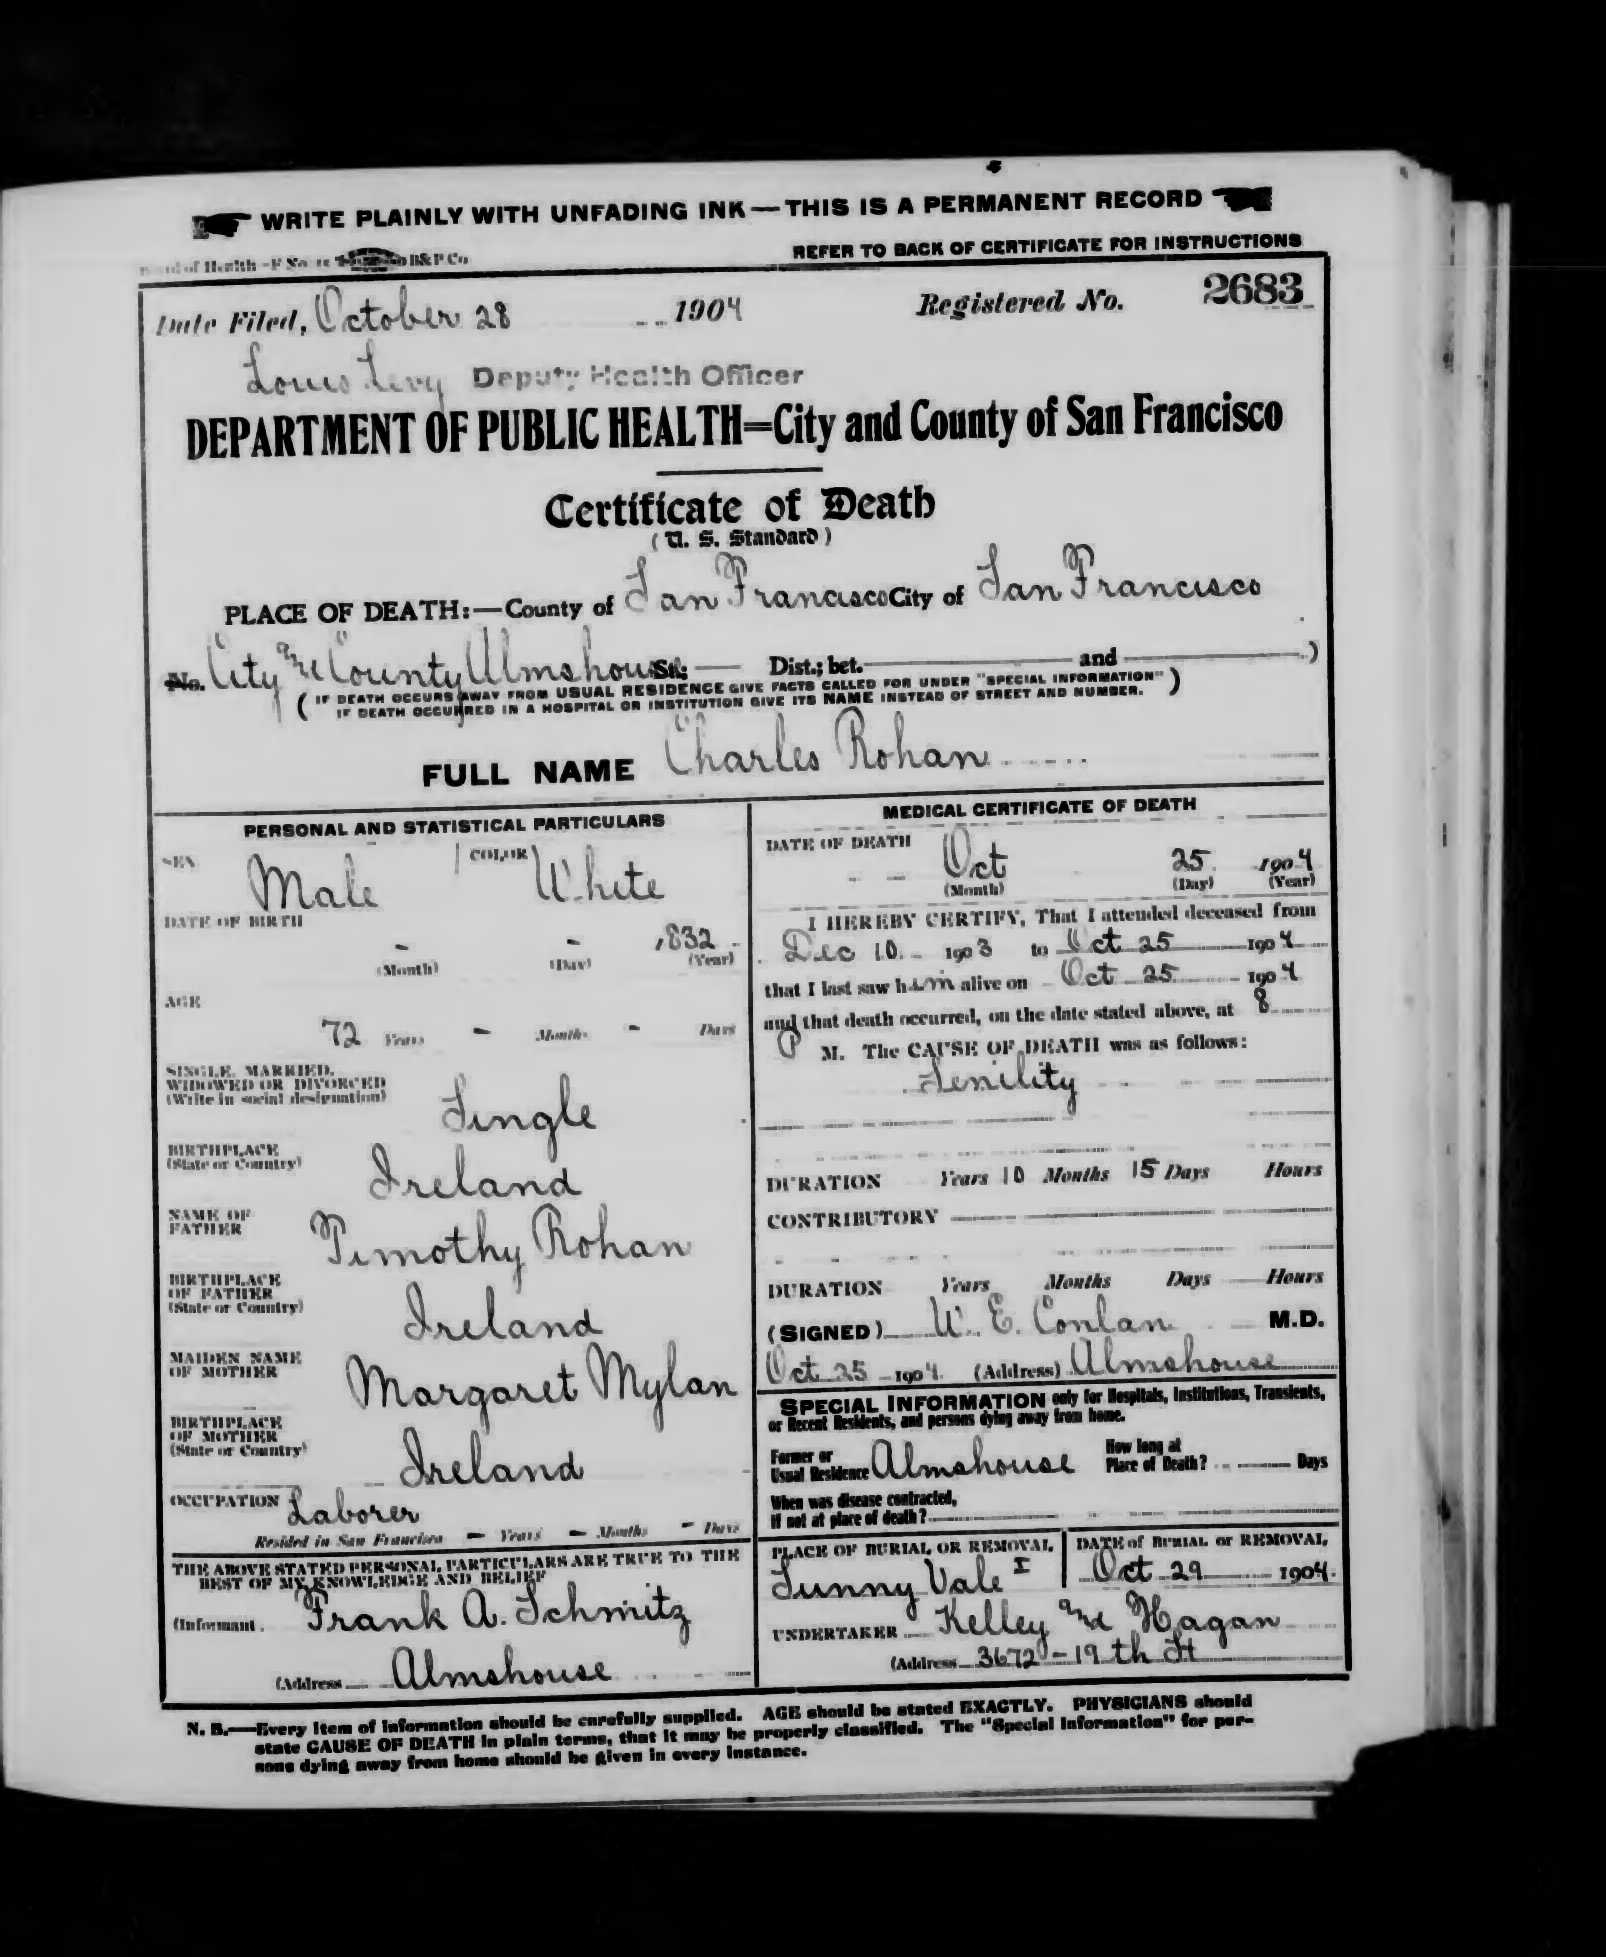 WRITE PLAINLY WITH UNFADING INK—THIS IS A PERMANENT RECORD
of Health B&P Co
REFER TO BACK OF CERTIFICATE FOR INSTRUCTIONS
Date Filed, October 28 1904 Registered No. 2683
Louis Levy Deputy Health Officer
DEPARTMENT OF PUBLIC HEALTH=City and County of San Francisco
Certificate of Death
(U. S. Standard)
PLACE OF DEATH:—County of San Francisco City of San Francisco
No. City and County Almshouse St.; Dist.; bet. and )
( IF DEATH OCCURS AWAY FROM USUAL RESIDENCE GIVE FACTS CALLED FOR UNDER "SPECIAL INFORMATION" )
IF DEATH OCCURRED IN A HOSPITAL OR INSTITUTION GIVE ITS NAME INSTEAD OF STREET AND NUMBER.
FULL NAME Charles Rohan
PERSONAL AND STATISTICAL PARTICULARS
SEX Male COLOR White
DATE OF BIRTH
- - 1832
(Month) (Day) (Year)
AGE
72 Years - Months - Days
SINGLE, MARRIED,
WIDOWED OR DIVORCED
(Write in social designation) Single
BIRTHPLACE
(State or Country) Ireland
NAME OF
FATHER Timothy Rohan
BIRTHPLACE
OF FATHER
(State or Country) Ireland
MAIDEN NAME
OF MOTHER Margaret Mylan
BIRTHPLACE
OF MOTHER
(State or Country) Ireland
OCCUPATION Laborer
Resided in San Francisco - Years - Months - Days
THE ABOVE STATED PERSONAL PARTICULARS ARE TRUE TO THE
BEST OF MY KNOWLEDGE AND BELIEF
(Informant Frank A. Schmitz
(Address Almshouse
MEDICAL CERTIFICATE OF DEATH
DATE OF DEATH
Oct 25 1904
(Month) (Day) (Year)
I HEREBY CERTIFY, That I attended deceased from
Dec 10 1903 to Oct 25 1904
that I last saw him alive on Oct 25 1904
and that death occurred, on the date stated above, at 8
P M. The CAUSE OF DEATH was as follows:
Senility
DURATION Years 10 Months 15 Days Hours
CONTRIBUTORY
DURATION Years Months Days Hours
(SIGNED) W. E. Conlan M.D.
Oct 25 1904 (Address) Almshouse
SPECIAL INFORMATION only for Hospitals, Institutions, Transients,
or Recent Residents, and persons dying away from home.
Former or
Usual Residence Almshouse
How long at
Place of Death? Days
When was disease contracted,
if not at place of death?
PLACE OF BURIAL OR REMOVAL
Sunny Vale I
DATE of BURIAL or REMOVAL
Oct 29 1904.
UNDERTAKER Kelley and Hagan
(Address 3672-19th St
N. B.—Every item of information should be carefully supplied. AGE should be stated EXACTLY. PHYSICIANS should
state CAUSE OF DEATH in plain terms, that it may be properly classified. The "Special Information" for per-
sons dying away from home should be given in every instance.